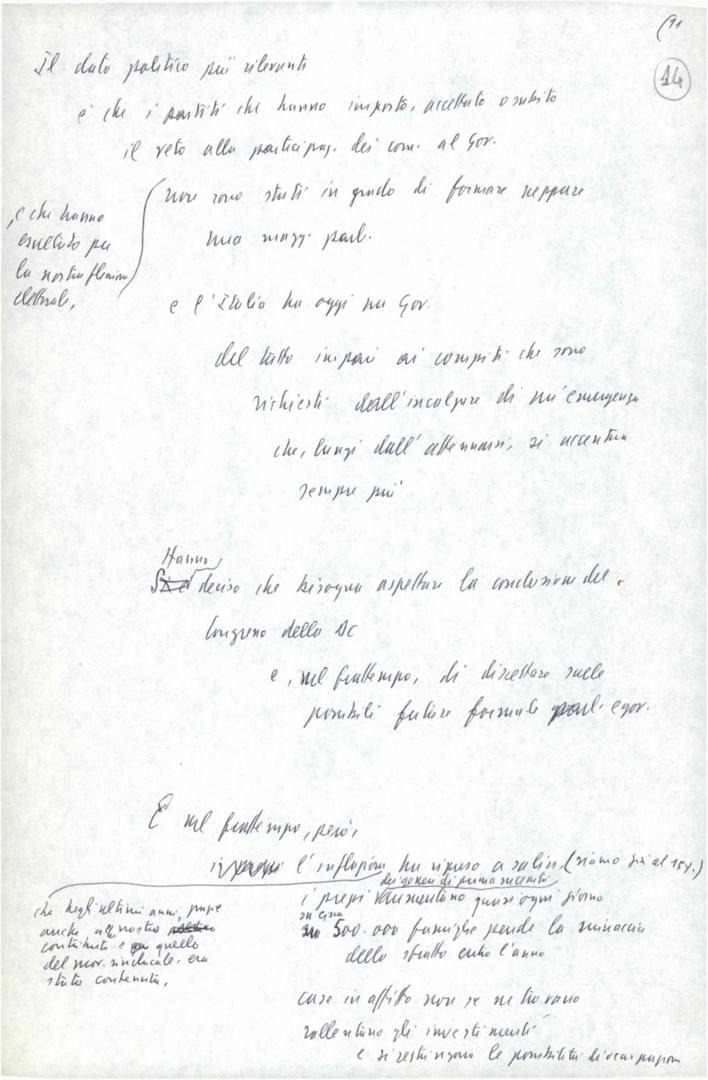 14
Il dato politico più rilevante
è che i partiti che hanno imposto, accettato o subito
il veto alla particip. dei com. al Gov.
non sono stati in grado di formare neppure
una magg. parl.
, e che hanno
esultato per
la nostra flessione
elettorale,
e l'Italia ha oggi un Gov.
del tutto impari ai compiti che sono
richiesti dall'incalzare di un'emergenza
che, lungi dall'attenuarsi, si accentua
sempre più
Hanno
deciso che bisogna aspettare la conclusione del
Congresso della DC
e, nel frattempo, di discettare sulle
possibili future formule parl. e gov.
E nel frattempo, però,
l'inflazione ha ripreso a salire (siamo già al 15%.)
che negli ultimi anni, grazie
anche al nostro
contributo e a quello
del mov. sindacale, era
stata contenuta,
dei generi di prima necessità
i prezzi aumentano quasi ogni giorno
su circa
500.000 famiglie pende la minaccia
dello sfratto entro l'anno
case in affitto non se ne trovano
rallentano gli investimenti
e si restringono le possibilità di occupazione